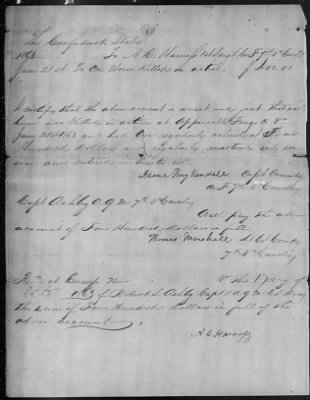 The Confederate States
1863 To A. C. Harness 1st Sergt Co F 7th Va Cavl
June 21st To One Horse Killed in action $400.00
I certify that the above account is correct and just that said
horse was killed in action at Upperville Va
June 21st 1863 and had been regularly valued at Four
hundred dollars and regularly mustered into ser
vice and entered in muster roll
Isaac Kuykendall Capt Comdg
Co F 7th Va Cavalry
Capt Ashby A Q M 7th Va Cavalry
Will pay the above
account of Four Hundred Dollars in full
Thomas Marshall Lt Col Comdg
7th Va Cavalry
Rec'd at Camp the day of
1863 of Robert L Ashby Capt & A Q M C.S. Army
the sum of Four Hundred Dollars in full of the
above account.
A C Harness